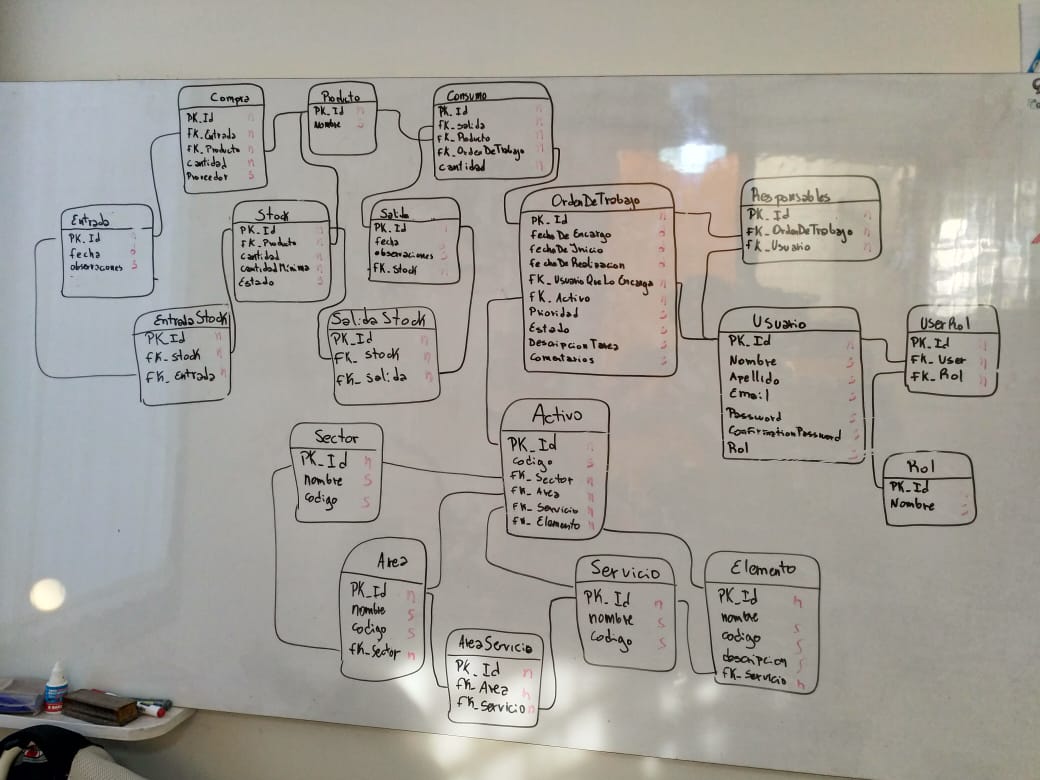 Compra
PK_Id n
FK_Entrada n
FK_Producto n
Cantidad n
Proveedor s
Producto
PK_Id n
Nombre s
Consumo
PK_Id n
FK_Salida n
FK_Producto n
FK_OrdenDeTrabajo n
Cantidad n
Entrada
PK_Id
fecha
observaciones s
Stock
PK_Id n
FK_Producto n
Cantidad n
Cantidad Minima n
Estado s
Salida
PK_Id
fecha
observaciones s
FK_Stock n
OrdenDeTrabajo
PK_Id n
fechaDe Encargo
fechaDe Inicio
fechaDe Realizacion
FK_UsuarioQueLo Encarga n
FK_Activo n
Prioridad
Estado
Descripcion Tarea s
Comentarios s
Responsables
PK_Id n
FK_OrdenDeTrabajo n
FK_Usuario n
EntradaStock
PK_Id n
FK_Stock n
FK_Entrada n
SalidaStock
PK_Id n
FK_Stock n
FK_Salida n
Usuario
PK_Id n
Nombre s
Apellido s
Email s
Password s
ConfirmationPassword s
Rol s
UserRol
PK_Id n
FK_User n
FK_Rol n
Rol
PK_Id
Nombre s
Sector
PK_Id n
nombre s
codigo s
Activo
PK_Id n
codigo s
FK_Sector n
FK_Area n
FK_Servicio n
FK_Elemento n
Area
PK_Id n
nombre s
codigo s
FK_Sector n
AreaServicio
PK_Id n
FK_Area n
FK_Servicio n
Servicio
PK_Id n
nombre s
codigo s
Elemento
PK_Id n
nombre s
codigo s
descripcion s
FK_Servicio n